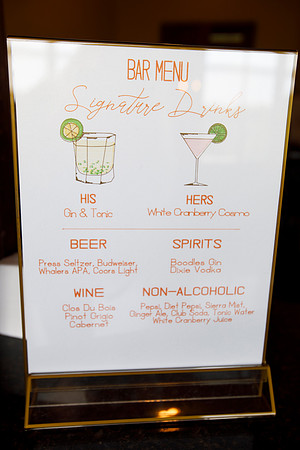 BAR MENU
Signature Drinks
HIS
Gin & Tonic
HERS
White Cranberry Cosmo
BEER
Press Seltzer, Budweiser,
Whalers APA, Coors Light
SPIRITS
Boodles Gin
Dixie Vodka
WINE
Clos Du Bois
Pinot Grigio
Cabernet
NON-ALCOHOLIC
Pepsi, Diet Pepsi, Sierra Mist,
Ginger Ale, Club Soda, Tonic Water
White Cranberry Juice